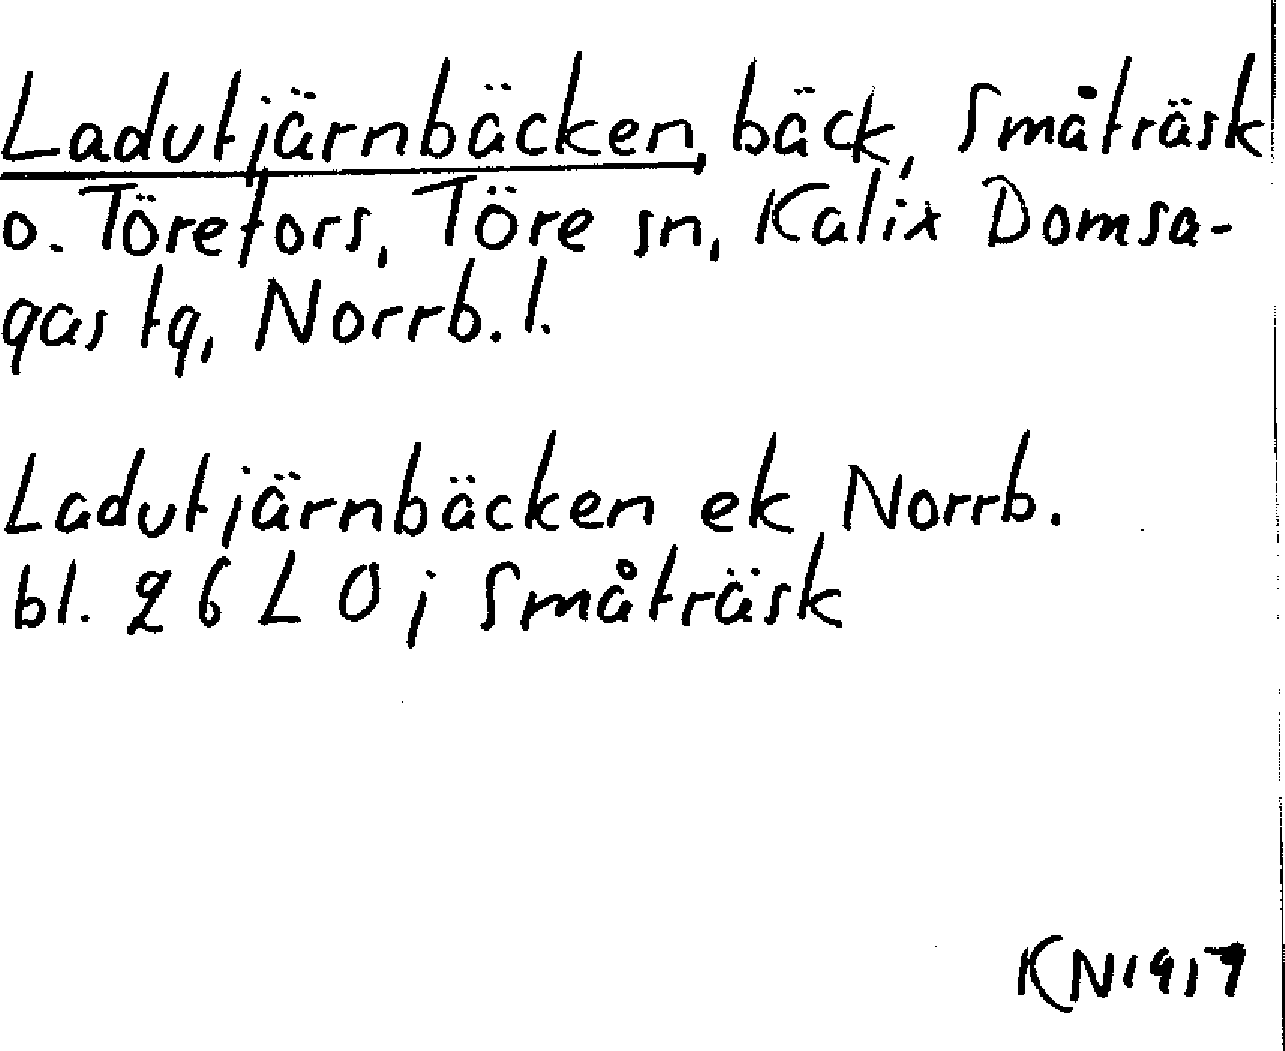 Ladutjärnbäcken, bäck, Småträsk
o. Törefors, Töre sn, Kalix Domsa-
gas tg, Norrb. l.
Ladutjärnbäcken ek Norrb.
bl. 26 L O; Småträsk
KN1917